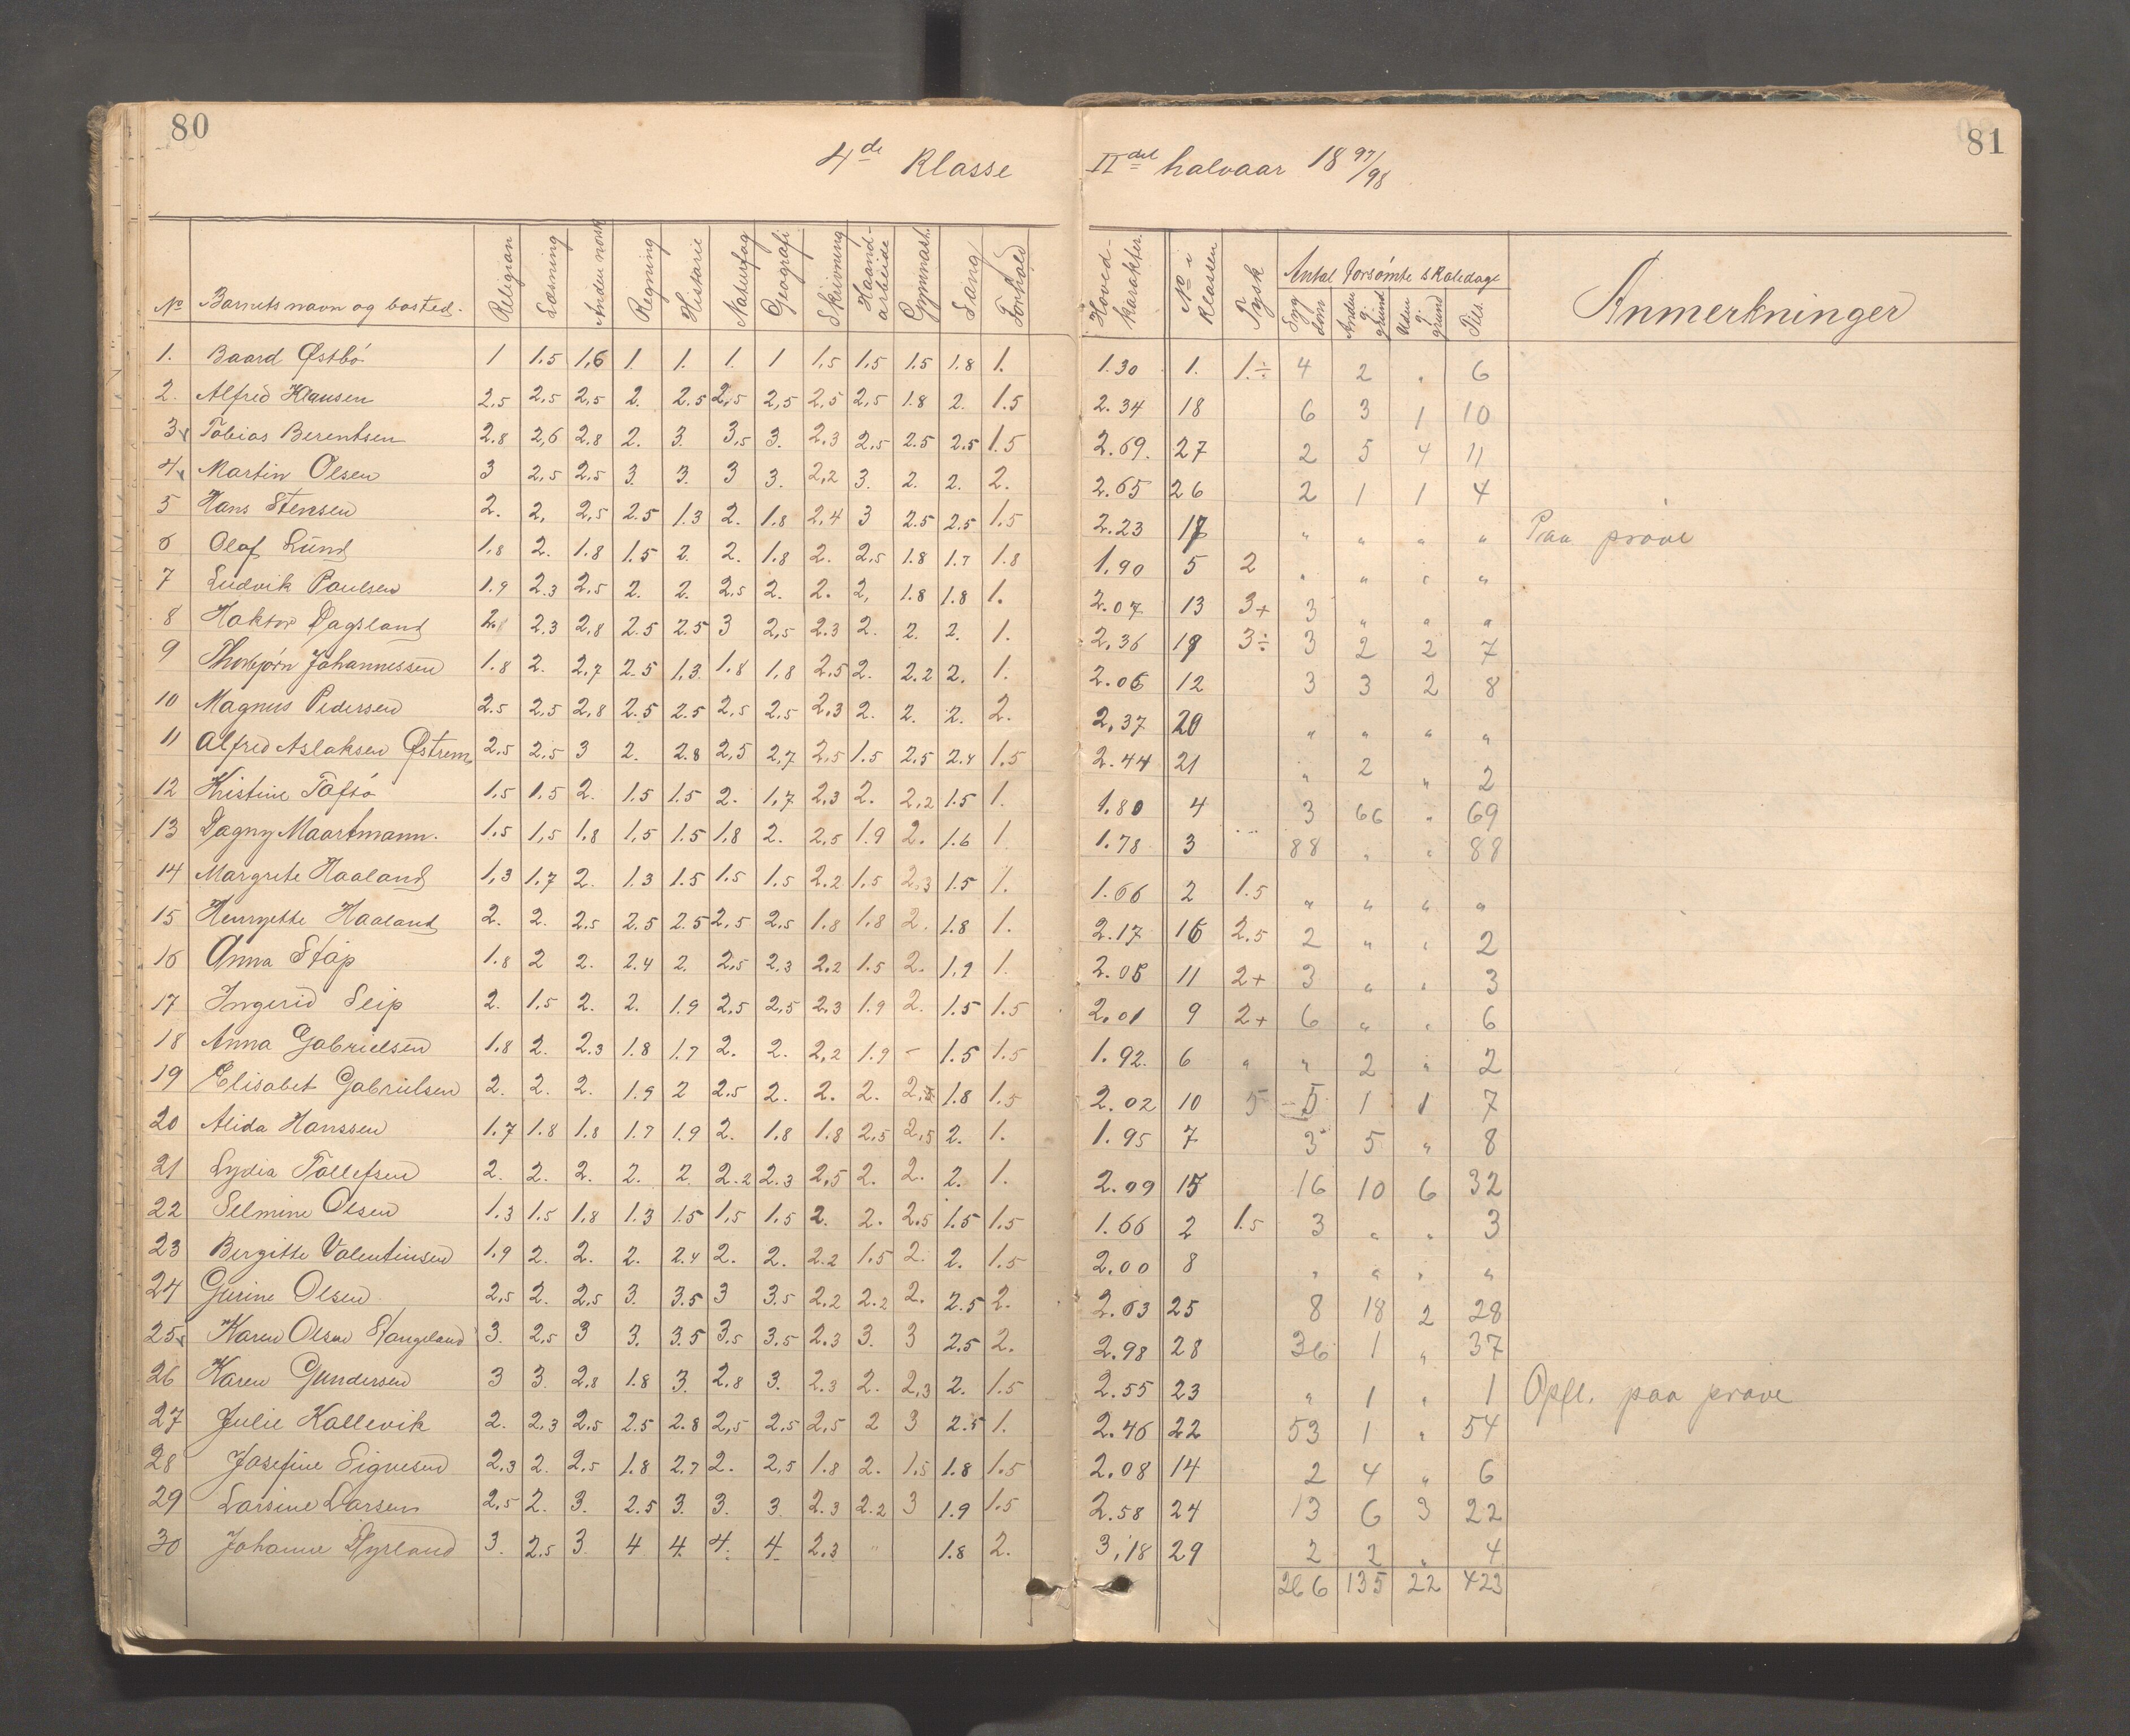 80
4de Klasse
IIdet halvaar 18 97/98
81
No Barnets navn og bosted. Religion Læsning Anden norsk Regning Historie Naturfag Geografi Skrivning Haand-arbeide Gymnast. Sang Forhold Hoved-karakter. No i Klassen Tysk Antal forsømte skoledage Syg dom Anden g. grund Uden g. grund Tils. Anmerkninger
1. Baard Østbø 1 1.5 1.6 1. 1. 1. 1 1.5 1.5 1.5 1.8 1. 1.30 1. 1.÷ 4 2 " 6
2. Alfred Hansen 2.5 2.5 2.5 2. 2.5 2.5 2.5 2.5 2.5 1.8 2. 1.5 2.34 18 6 3 1 10
3 Tobias Berentsen 2.8 2.6 2.8 2. 3. 3.5 3. 2.3 2.5 2.5 2.5 1.5 2.69. 27 2 5 4 11
4 Martin Olsen 3 2.5 2.5 3. 3. 3 3. 2.2 3. 2. 2. 2. 2.65 26 2 1 1 4
5 Hans Stensen 2. 2. 2.5 2.5 1.3 2. 1.8 2.4 3 2.5 2.5 1.5 2.23 17 " " " " Paa prøve
6 Olaf Lund 1.8 2. 1.8 1.5 2. 2. 1.8 2. 2.5 1.8 1.7 1.8 1.90 5 2 " " " "
7 Ludvik Paulsen 1.9 2.3 2.5 2. 2. 2.5 2. 2. 2. 1.8 1.8 1. 2.07 13 3+ 3 " " "
8 Haktor Dagsland 2.8 2.3 2.8 2.5 2.5 3 2.5 2.3 2. 2. 2. 1. 2.36 19 3÷ 3 2 2 7
9 Thorbjørn Johannessen 1.8 2. 2.7 2.5 1.3 1.8 1.8 2.5 2. 2.2 2. 1. 2.06 12 3 3 2 8
10 Magnus Pedersen 2.5 2.5 2.8 2.5 2.5 2.5 2.5 2.3 2. 2. 2. 2. 2.37 20 " " " "
11 Alfred Aslaksen Østrem 2.5 2.5 3 2. 2.8 2.5 2.7 2.5 1.5 2.5 2.4 1.5 2.44 21 " 2 " 2
12 Kristine Tofsø 1.5 1.5 2. 1.5 1.5 2. 1.7 2.3 2. 2.2 1.5 1. 1.80 4 3 66 " 69
13 Dagny Maartmann. 1.5 1.5 1.8 1.5 1.5 1.8 2. 2.5 1.9 2. 1.6 1 1.78 3 88 " " 88
14 Margrete Haaland 1.3 1.7 2. 1.3 1.5 1.5 1.5 2.2 1.5 2.3 1.5 1. 1.66 2 1.5 " " " "
15 Henryette Haaland 2. 2. 2.5 2.5 2.5 2.5 2.5 1.8 1.8 2. 1.8 1. 2.17 16 2.5 2 " " 2
16 Anna Støp 1.8 2 2. 2.4 2. 2.5 2.3 2.2 1.5 2. 1.9 1. 2.05 11 2+ 3 " " 3
17 Ingerid Seip 2. 1.5 2. 2. 1.9 2.5 2.5 2.3 1.9 2. 1.5 1.5 2.01 9 2+ 6 " " 6
18 Anna Gabrielsen 1.8 2. 2.3 1.8 1.7 2. 2. 2.2 1.9 – 1.5 1.5 1.92. 6 " " 2 " 2
19 Elisabet Gabrielsen 2. 2. 2. 1.9 2 2.5 2. 2. 2. 2.5 1.8 1.5 2.02 10 5 5 1 1 7
20 Alida Hanssen 1.7 1.8 1.8 1.7 1.9 2. 1.8 1.8 2.5 2.5 2. 1. 1.95 7 3 5 " 8
21 Lydia Tollefsen 2. 2. 2. 2. 2. 2.2 2.3 2.5 2. 2. 2. 1. 2.09 15 16 10 6 32
22 Selmine Olsen 1.3 1.5 1.8 1.3 1.5 1.5 1.5 2. 2. 2.5 1.5 1.5 1.66 2 1.5 3 " " 3
23 Bergitte Valentinsen 1.9 2. 2. 2. 2.4 2. 2. 2.2 1.5 2. 2. 1.5 2.00 8 " " " "
24 Gurine Olsen 2.5 2. 2.5 3. 3.5 3 3.5 2.2 2.2 2. 2.5 2. 2.63 25 8 18 2 28
25 Karen Olsen Stangeland 3. 2.5 3 3. 3.5 3.5 3.5 2.3 3. 3 2.5 2. 2.98 28 36 1 " 37
26 Karen Gundersen 3 3. 2.8 1.8 3. 2.8 3. 2.3 2. 2.3 2. 1.5 2.55 23 " 1 " 1 Opfl. paa prøve
27 Julie Kallevik 2. 2.3 2.5 2.5 2.8 2.5 2.5 2.5 2 3 2.5 1. 2.46 22 53 1 " 54
28 Josefine Signesen 2.3 2. 2.5 1.8 2.7 2. 2.5 1.8 2. 1.5 1.8 1.5 2.08 14 2 4 " 6
29 Larsine Larsen 2.5 2. 3. 2.5 3. 3. 3 2.3 2.2 3 1.9 1.5 2.58 24 13 6 3 22
30 Johanne Dysland 3. 2.5 3 4 4. 4. 4. 2.3 " 1.8 2. 3.18 29 2 2 " 4
266 135 22 423